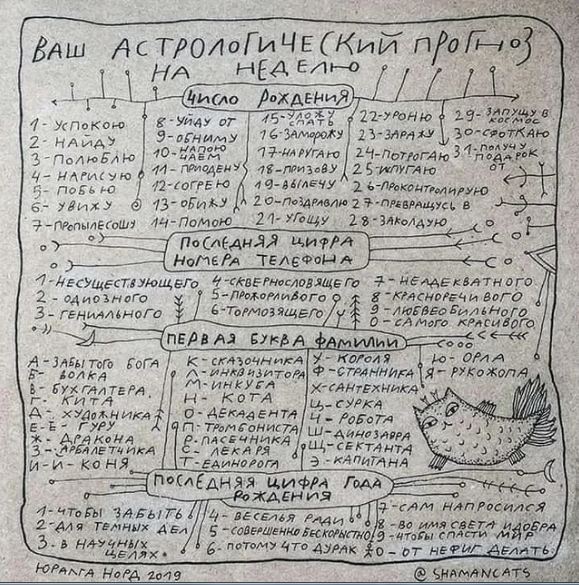 ВАШ АСТРОЛОГИЧЕСКИЙ ПРОГНОЗ
НА НЕДЕЛЮ
ЧИСЛО РОЖДЕНИЯ
1 - УСПОКОЮ
2 - НАЙДУ
3 - ПОЛЮБЛЮ
4 - НАРИСУЮ
5 - ПОБЬЮ
6 - УВИЖУ
7 - ПРОПЫЛЕСОШУ
8 - УЙДУ ОТ
9 - ОБНИМУ
10 - НАПОЮ
ЧАЕМ
11 - ПРИОДЕНУ
12 - СОГРЕЮ
13 - ОБИЖУ
14 - ПОМОЮ
15 - УЛОЖУ
СПАТЬ
16 - ЗАМОРОЖУ
17 - НАРУГАЮ
18 - ПРИЗОВУ
19 - ВЫЛЕЧУ
20 - ПОЗДРАВЛЮ
21 - УГОЩУ
22 - УРОНЮ
23 - ЗАРАЖУ
24 - ПОТРОГАЮ
25 - ИСПУГАЮ
26 - ПРОКОНТРОЛИРУЮ
27 - ПРЕВРАЩУСЬ В
28 - ЗАКОЛДУЮ
29 - ЗАПУЩУ В
КОСМОС
30 - СФОТКАЮ
31 - ПОЛУЧУ
ПОДАРОК
ОТ
ПОСЛЕДНЯЯ ЦИФРА
НОМЕРА ТЕЛЕФОНА
1 - НЕСУЩЕСТВУЮЩЕГО
2 - ОДИОЗНОГО
3 - ГЕНИАЛЬНОГО
4 - СКВЕРНОСЛОВЯЩЕГО
5 - ПРОЖОРЛИВОГО
6 - ТОРМОЗЯЩЕГО
7 - НЕАДЕКВАТНОГО
8 - КРАСНОРЕЧИВОГО
9 - ЛЮБВЕОБИЛЬНОГО
0 - САМОГО КРАСИВОГО
ПЕРВАЯ БУКВА ФАМИЛИИ
А - ЗАБЫТОГО БОГА
Б - ВОЛКА
В - БУХГАЛТЕРА
Г - КИТА
Д - ХУДОЖНИКА
Е-Ё - ГУРУ
Ж - ДРАКОНА
З - АРБАЛЕТЧИКА
И-Й - КОНЯ
К - СКАЗОЧНИКА
Л - ИНКВИЗИТОРА
М - ИНКУБА
Н - КОТА
О - ДЕКАДЕНТА
П - ТРОМБОНИСТА
Р - ПАСЕЧНИКА
С - ЛЕКАРЯ
Т - ЕДИНОРОГА
У - КОРОЛЯ
Ф - СТРАННИКА
Х - САНТЕХНИКА
Ц - СУРКА
Ч - РОБОТА
Ш - ДИНОЗАВРА
Щ - СЕКТАНТА
Э - КАПИТАНА
Ю - ОРЛА
Я - РУКОЖОПА
ПОСЛЕДНЯЯ ЦИФРА ГОДА
РОЖДЕНИЯ
1 - ЧТОБЫ ЗАБЫТЬ
2 - ДЛЯ ТЕМНЫХ ДЕЛ
3 - В НАУЧНЫХ
ЦЕЛЯХ
4 - ВЕСЕЛЬЯ РАДИ
5 - СОВЕРШЕННО БЕСКОРЫСТНО
6 - ПОТОМУ ЧТО ДУРАК
7 - САМ НАПРОСИЛСЯ
8 - ВО ИМЯ СВЕТА И ДОБРА
9 - ЧТОБЫ СПАСТИ МИР
0 - ОТ НЕФИГ ДЕЛАТЬ
ЮРАЛГА НОРД 2019
@ SHAMANCATS